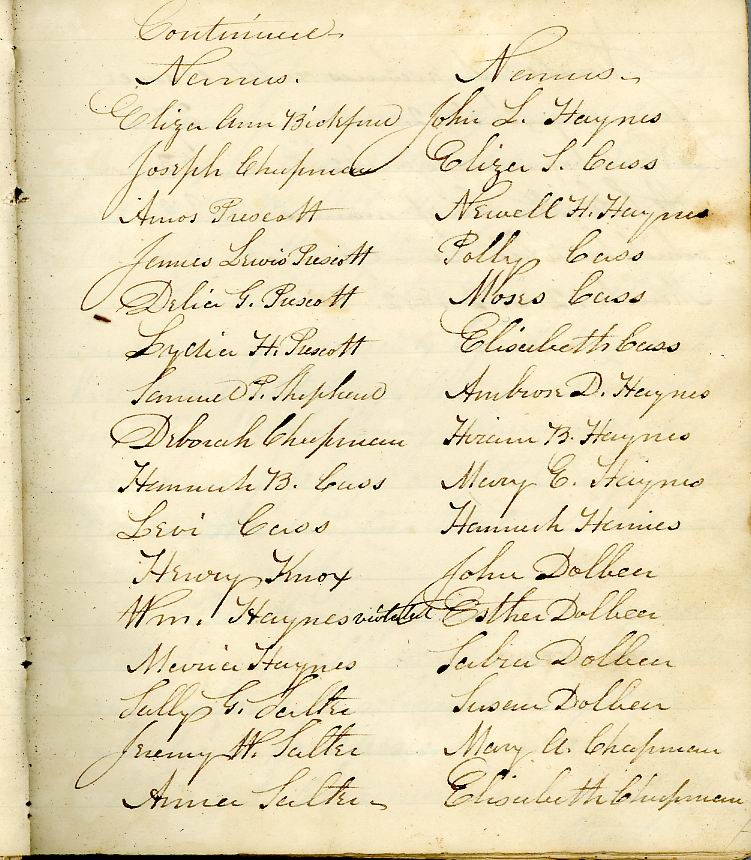 Continued
Names. Names.
Eliza Ann Bickford John L. Haynes
Joseph Chapman Eliza S. Cass
Amos Prescott Newell H. Haynes
James Lewis Prescott Polly Cass
Delia G. Prescott Moses Cass
Lydia H. Prescott Elisabeth Cass
Samuel P. Shepherd Ambrose D. Haynes
Deborah Chapman Hiram B. Haynes
Hannah B. Cass Mary E. Haynes
Levi Cass Hannah Haines
Henry Knox John Dolbeer
Wm. Haynes violated Esther Dolbeer
Maria Haynes Sabra Dolbeer
Sally G. Salter Susan Dolbeer
Jeremy W. Salter Mary A. Chapman
Anna Salter Elisabeth Chapman